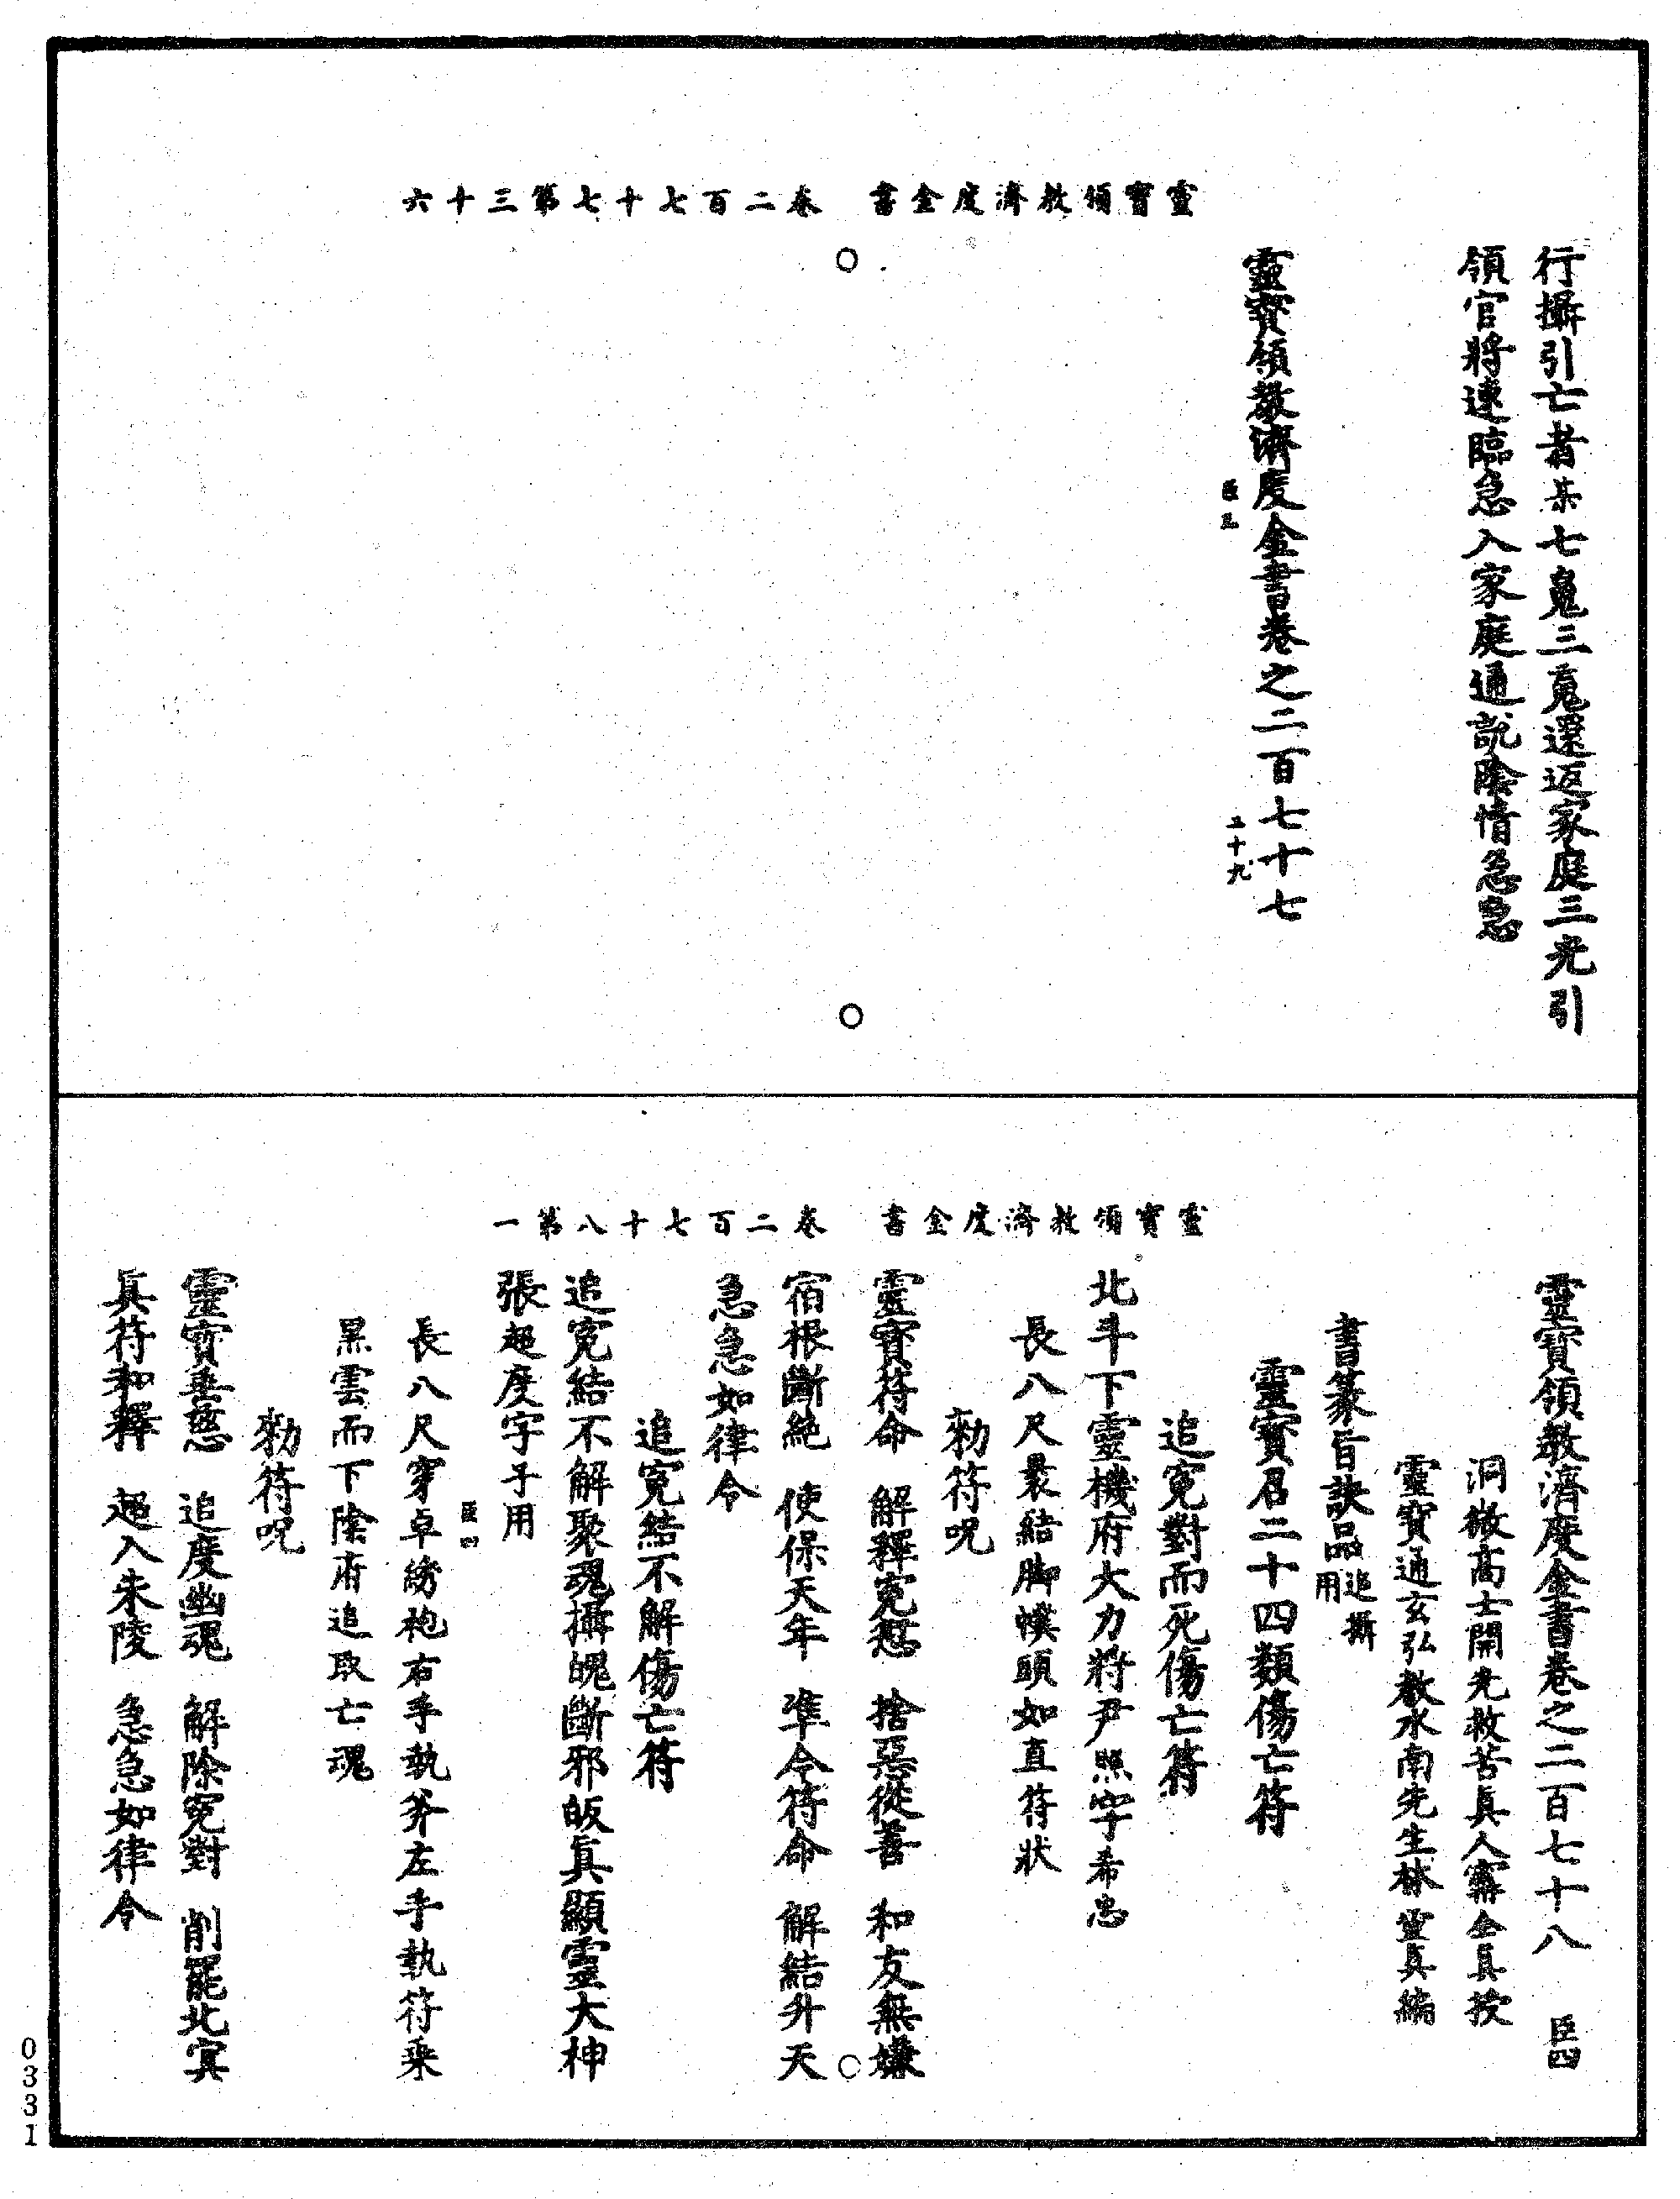 靈寶領教濟度金書　卷二百七十七第三十六
行攝引亡者某七䰟三魄還返家庭三光引
領官將速臨急入家庭通說陰情急急
靈寶領教濟度金書卷之二百七十七
三十九
靈寶領教濟度金書　卷二百七十八第一
靈寶領教濟度金書卷之二百七十八　臣四
洞微高士開光救苦真人甯全真授
靈寶通玄弘教水南先生林靈真編
書篆旨訣品追攝用
靈寶召二十四類傷亡符
追冤對而死傷亡符
北斗下靈機府大力將尹照字希忠
長八尺裹結脚幞頭如直符狀
勑符呪
靈寶符命　解釋冤愆　捨惡從善　和友無嫌
宿根斷絶　使保天年　準令符命　解結升天
急急如律令
追冤結不解傷亡符
追冤結不解聚魂攝魄斷邪皈真顯靈大神
張超度字子用
長八尺穿皁綉袍右手執斧左手執符乘
黑雲而下陰府追取亡魂
臣四
勑符呪
靈寶垂慈　追度幽魂　解除冤對　削罷北冥
真符和釋　超入朱陵　急急如律令
0331